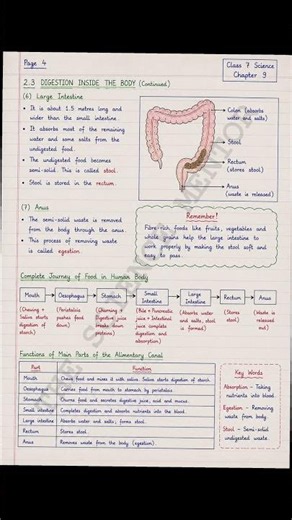 Page 4
Class 7 Science
Chapter 9
2.3 DIGESTION INSIDE THE BODY (Continued)
(6) Large Intestine
• It is about 1.5 metres long and
wider than the small intestine.
• It absorbs most of the remaining
water and some salts from the
undigested food.
• The undigested food becomes
semi-solid. This is called stool.
• Stool is stored in the rectum.
Colon (absorbs
water and salts)
Stool
Rectum
(stores stool)
Anus
(waste is released)
(7) Anus
• The semi-solid waste is removed
from the body through the anus.
• This process of removing waste
is called egestion.
Remember!
Fibre-rich foods like fruits, vegetables and
whole grains help the large intestine to
work properly by making the stool soft and
easy to pass.
Complete Journey of Food in Human Body
Mouth → Oesophagus → Stomach → Small Intestine → Large Intestine → Rectum → Anus
(Chewing + Saliva starts digestion of starch)
(Peristalsis pushes food down)
(Churning + Digestive juice breaks down proteins)
(Bile + Pancreatic juice + Intestinal juice complete digestion and absorption)
(Absorbs water and salts, stool is formed)
(Stores stool)
(Waste is released out)
Functions of Main Parts of the Alimentary Canal
Part Function
Mouth Chews food and mixes it with saliva. Saliva starts digestion of starch.
Oesophagus Carries food from mouth to stomach by peristalsis.
Stomach Churns food and secretes digestive juice, acid and mucus.
Small intestine Completes digestion and absorbs nutrients into the blood.
Large intestine Absorbs water and salts; forms stool.
Rectum Stores stool.
Anus Removes waste from the body (egestion).
Key Words
Absorption - Taking
nutrients into blood.
Egestion - Removing
waste from body.
Stool - Semi-solid
undigested waste.